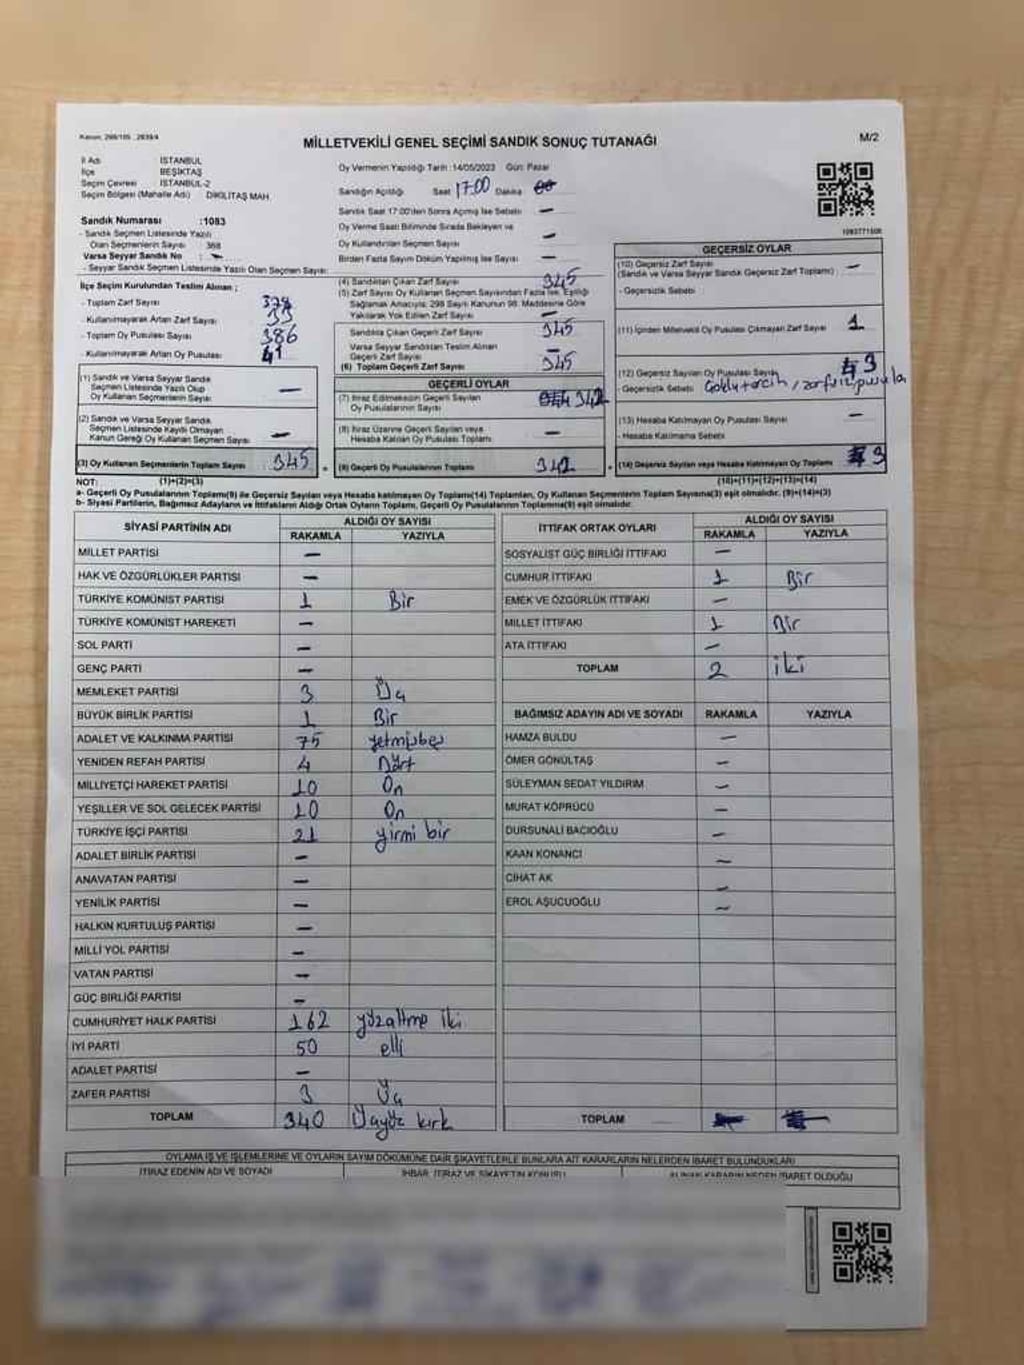 Kanun: 298/105 , 2839/4
MİLLETVEKİLİ GENEL SEÇİMİ SANDIK SONUÇ TUTANAĞI
M/2
İl Adı İSTANBUL
İlçe BEŞİKTAŞ
Seçim Çevresi İSTANBUL-2
Seçim Bölgesi (Mahalle Adı) DİKİLİTAŞ MAH
Sandık Numarası :1083
- Sandık Seçmen Listesinde Yazılı
Olan Seçmenlerin Sayısı 368
Varsa Seyyar Sandık No : -
- Seyyar Sandık Seçmen Listesinde Yazılı Olan Seçmen Sayısı:
Oy Vermenin Yapıldığı Tarih :14/05/2023 Gün: Pazar
Sandığın Açıldığı Saat 17:00 Dakika 00
Sandık Saat 17:00'den Sonra Açılmış İse Sebebi -
Oy Verme Saati Bitiminde Sırada Bekleyen ve
Oy Kullandırılan Seçmen Sayısı -
Birden Fazla Sayım Döküm Yapılmış İse Sayısı -
1083771506
İlçe Seçim Kurulundan Teslim Alınan ;
- Toplam Zarf Sayısı 378
- Kullanılmayarak Artan Zarf Sayısı 33
- Toplam Oy Pusulası Sayısı 386
- Kullanılmayarak Artan Oy Pusulası 41
(1) Sandık ve Varsa Seyyar Sandık
Seçmen Listesinde Yazılı Olup
Oy Kullanan Seçmenlerin Sayısı -
(2) Sandık ve Varsa Seyyar Sandık
Seçmen Listesinde Kaydı Olmayan
Kanun Gereği Oy Kullanan Seçmen Sayısı -
(3) Oy Kullanan Seçmenlerin Toplam Sayısı 345
(4) Sandıktan Çıkan Zarf Sayısı 345
(5) Zarf Sayısı Oy Kullanan Seçmen Sayısından Fazla İse, Eşitliği
Sağlamak Amacıyla; 298 Sayılı Kanunun 98. Maddesine Göre
Yakılarak Yok Edilen Zarf Sayısı -
Sandıkta Çıkan Geçerli Zarf Sayısı 345
Varsa Seyyar Sandıktan Teslim Alınan
Geçerli Zarf Sayısı -
(6) Toplam Geçerli Zarf Sayısı 345
GEÇERLİ OYLAR
(7) İtiraz Edilmeksizin Geçerli Sayılan
Oy Pusulalarının Sayısı 342
(8) İtiraz Üzerine Geçerli Sayılan veya
Hesaba Katılan Oy Pusulası Toplamı -
(9) Geçerli Oy Pusulalarının Toplamı 342
GEÇERSİZ OYLAR
(10) Geçersiz Zarf Sayısı
(Sandık ve Varsa Seyyar Sandık Geçersiz Zarf Toplamı) -
- Geçersizlik Sebebi
(11) İçinden Milletvekili Oy Pusulası Çıkmayan Zarf Sayısı 1
(12) Geçersiz Sayılan Oy Pusulası Sayısı 3
- Geçersizlik Sebebi Çoklu tercih / zarfsız pusula
(13) Hesaba Katılmayan Oy Pusulası Sayısı -
- Hesaba Katılmama Sebebi
(14) Geçersiz Sayılan veya Hesaba Katılmayan Oy Toplamı 3
NOT: (1)+(2)=(3) (10)+(11)+(12)+(13)=(14)
a- Geçerli Oy Pusulalarının Toplamı(9) ile Geçersiz Sayılan veya Hesaba katılmayan Oy Toplamı(14) Toplamları, Oy Kullanan Seçmenlerin Toplam Sayısına(3) eşit olmalıdır. (9)+(14)=(3)
b- Siyasi Partilerin, Bağımsız Adayların ve İttifakların Aldığı Ortak Oyların Toplamı, Geçerli Oy Pusulalarının Toplamına(9) eşit olmalıdır.
SİYASİ PARTİNİN ADI ALDIĞI OY SAYISI
RAKAMLA YAZIYLA
MİLLET PARTİSİ -
HAK VE ÖZGÜRLÜKLER PARTİSİ -
TÜRKİYE KOMÜNİST PARTİSİ 1 Bir
TÜRKİYE KOMÜNİST HAREKETİ -
SOL PARTİ -
GENÇ PARTİ -
MEMLEKET PARTİSİ 3 Üç
BÜYÜK BİRLİK PARTİSİ 1 Bir
ADALET VE KALKINMA PARTİSİ 75 yetmişbeş
YENİDEN REFAH PARTİSİ 4 Dört
MİLLİYETÇİ HAREKET PARTİSİ 10 On
YEŞİLLER VE SOL GELECEK PARTİSİ 10 On
TÜRKİYE İŞÇİ PARTİSİ 21 yirmi bir
ADALET BİRLİK PARTİSİ -
ANAVATAN PARTİSİ -
YENİLİK PARTİSİ -
HALKIN KURTULUŞ PARTİSİ -
MİLLİ YOL PARTİSİ -
VATAN PARTİSİ -
GÜÇ BİRLİĞİ PARTİSİ -
CUMHURİYET HALK PARTİSİ 162 yüzaltmış iki
İYİ PARTİ 50 elli
ADALET PARTİSİ -
ZAFER PARTİSİ 3 Üç
TOPLAM 340 Üçyüz kırk
İTTİFAK ORTAK OYLARI ALDIĞI OY SAYISI
RAKAMLA YAZIYLA
SOSYALİST GÜÇ BİRLİĞİ İTTİFAKI -
CUMHUR İTTİFAKI 1 Bir
EMEK VE ÖZGÜRLÜK İTTİFAKI -
MİLLET İTTİFAKI 1 Bir
ATA İTTİFAKI -
TOPLAM 2 iki
BAĞIMSIZ ADAYIN ADI VE SOYADI RAKAMLA YAZIYLA
HAMZA BULDU -
ÖMER GÖNÜLTAŞ -
SÜLEYMAN SEDAT YILDIRIM -
MURAT KÖPRÜCÜ -
DURSUNALİ BACIOĞLU -
KAAN KONANCI -
CİHAT AK -
EROL AŞUCUOĞLU -
TOPLAM
OYLAMA İŞ VE İŞLEMLERİNE VE OYLARIN SAYIM DÖKÜMÜNE DAİR ŞİKAYETLERLE BUNLARA AİT KARARLARIN NELERDEN İBARET BULUNDUKLARI
İTİRAZ EDENİN ADI VE SOYADI İHBAR, İTİRAZ VE ŞİKAYETİN KONUSU ALINAN KARARIN NEDEN İBARET OLDUĞU